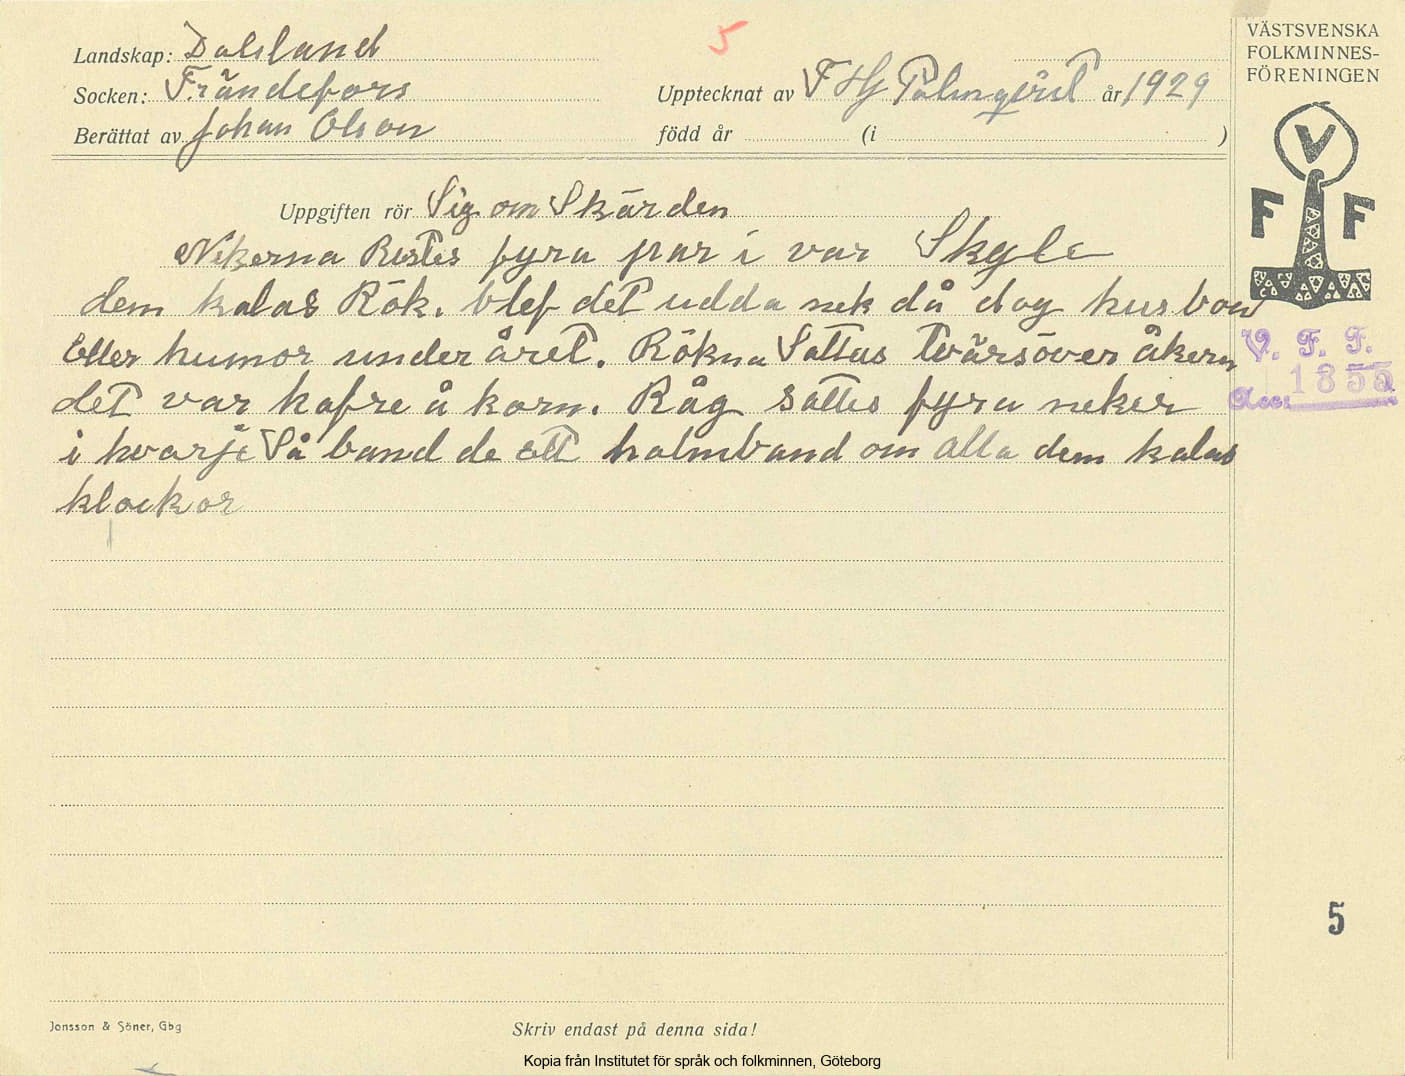 5
VÄSTSVENSKA
FOLKMINNES-
FÖRENINGEN
Landskap: Dalsland
Socken: Frändefors
Upptecknat av F Hj Palmqvist år 1929
Berättat av Johan Olson
född år (i )
V
F F
Uppgiften rör Sig om Skärden
Nekerna Restes fyra par i var Skyle
dem kalas Rök. blef det udda nek då dog husbon
Eller humor under året. Rökna Sattes tvärsöver åkern
det var hafre å korn. Råg sattes fyra neker
i hvarje Så band de ett halmband om alla dem kalas
klockor
V. F. F.
1855
Acc:
5
Jonsson & Söner, Gbg
Skriv endast på denna sida!
Kopia från Institutet för språk och folkminnen, Göteborg